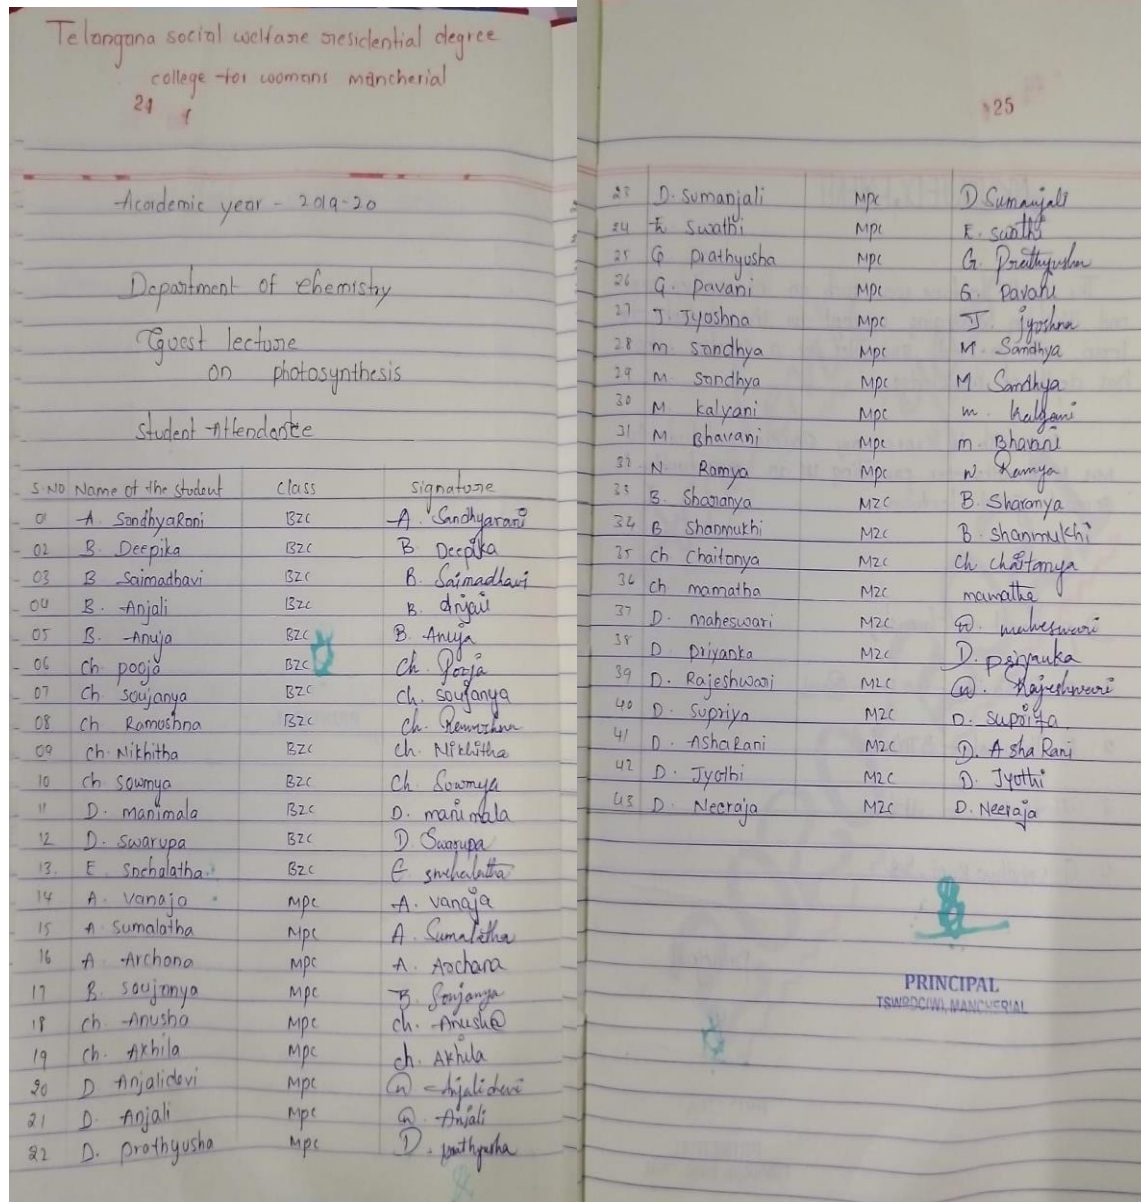 Telangana social welfare residential degree
college for womans mancherial
24
Academic year - 2019-20
Department of chemistry
Guest lecture
on photosynthesis
Student Attendance
S.NO Name of the student Class Signature
01 A. SandhyaRani BZC A. Sandhyarani
02 B. Deepika BZC B Deepika
03 B Saimadhavi BZC B. Saimadhavi
04 B. Anjali BZC B. Anjali
05 B. Anuja BZC B. Anuja
06 Ch pooja BZC Ch. Pooja
07 Ch soujanya BZC ch. soujanya
08 Ch Ramoshna BZC ch.
09 Ch. Nikhitha BZC ch. Nikhitha
10 Ch. sowmya BZC Ch Sowmya
11 D. manimala BZC D. manimala
12 D. swarupa BZC D Swarupa
13. E Snehalatha BZC E snehalatha
14 A. vanaja MPC A. vanaja
15 A Sumalatha MPC A. Sumalatha
16 A Archana MPC A. Archana
17 B. soujanya MPC B. Soujanya
18 Ch Anusha MPC ch. Anusha
19 Ch. Akhila MPC ch. Akhila
20 D Anjalidevi MPC Anjalidevi
21 D. Anjali MPC Anjali
22 D. prathyusha MPC D. prathyusha
25
23 D. Sumanjali MPC D Sumanjali
24 E Swathi MPC E. swathi
25 G prathyusha MPC G. Prathyusha
26 G. pavani MPC G. pavani
27 J. Jyoshna MPC J jyoshna
28 m. sandhya MPC M. Sandhya
29 M. sandhya MPC M Sandhya
30 M kalyani MPC m. kalyani
31 M. Bhavani MPC m. Bhavani
32 N. Ramya MPC N Ramya
33 B. Sharanya MZC B. Sharanya
34 B Shanmukhi MZC B. shanmukhi
35 ch Chaitanya MZC ch chaitanya
36 ch mamatha MZC mamatha
37 D. maheswari MZC maheswari
38 D priyanka MZC D. priyanka
39 D. Rajeshwari MZC Rajeshwari
40 D. Supriya MZC D. supriya
41 D. AshaRani MZC D. Asha Rani
42 D. Jyothi MZC D. Jyothi
43 D. Neeraja MZC D. Neeraja
PRINCIPAL
TSWRDC(W), MANCHERIAL